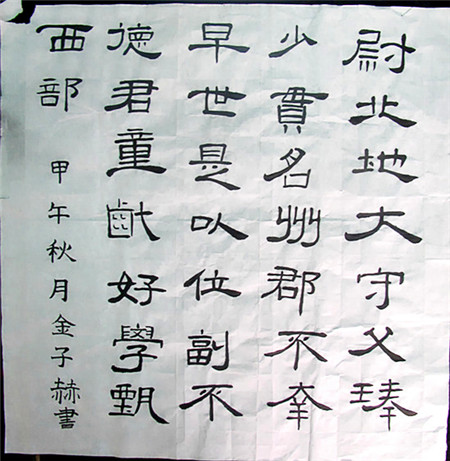 尉北地大守父琫
少貫名州郡不幸
早世是以位副不
德君童齔好學甄
西部
甲午秋月金子赫書